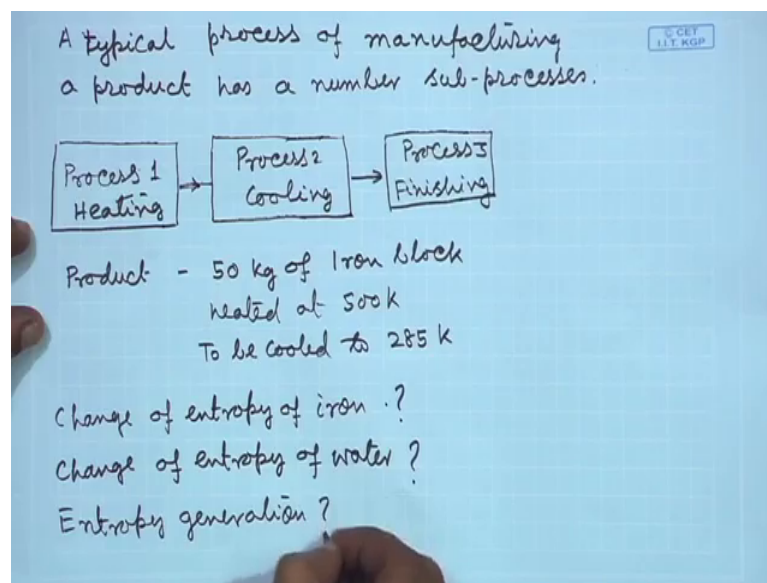 A typical process of manufacturing
a product has a number sub-processes.
© CET
I.I.T. KGP
Process 1
Heating
Process 2
Cooling
Process 3
Finishing
Product - 50 kg of Iron block
heated at 500K
To be cooled to 285 K
Change of entropy of iron .?
Change of entropy of water ?
Entropy generation ?